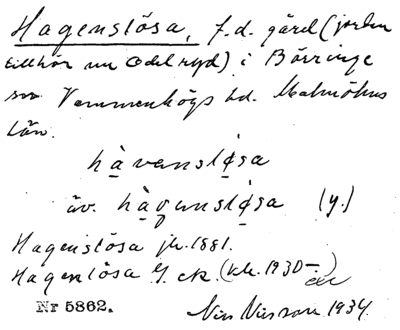 Hagenslösa, f.d. gård (jorden
tillhör nu Adelsryd) i Börringe
sn Vemmenhögs hd. Malmöhus
län.
hàvenslø̣sa
äv. hàgenslø̣sa (y.)
Hagenslösa jb. 1881.
Hagenlösa g. ek. (bl. 1930-
Nr 5862. Nils Nilsson 1934.